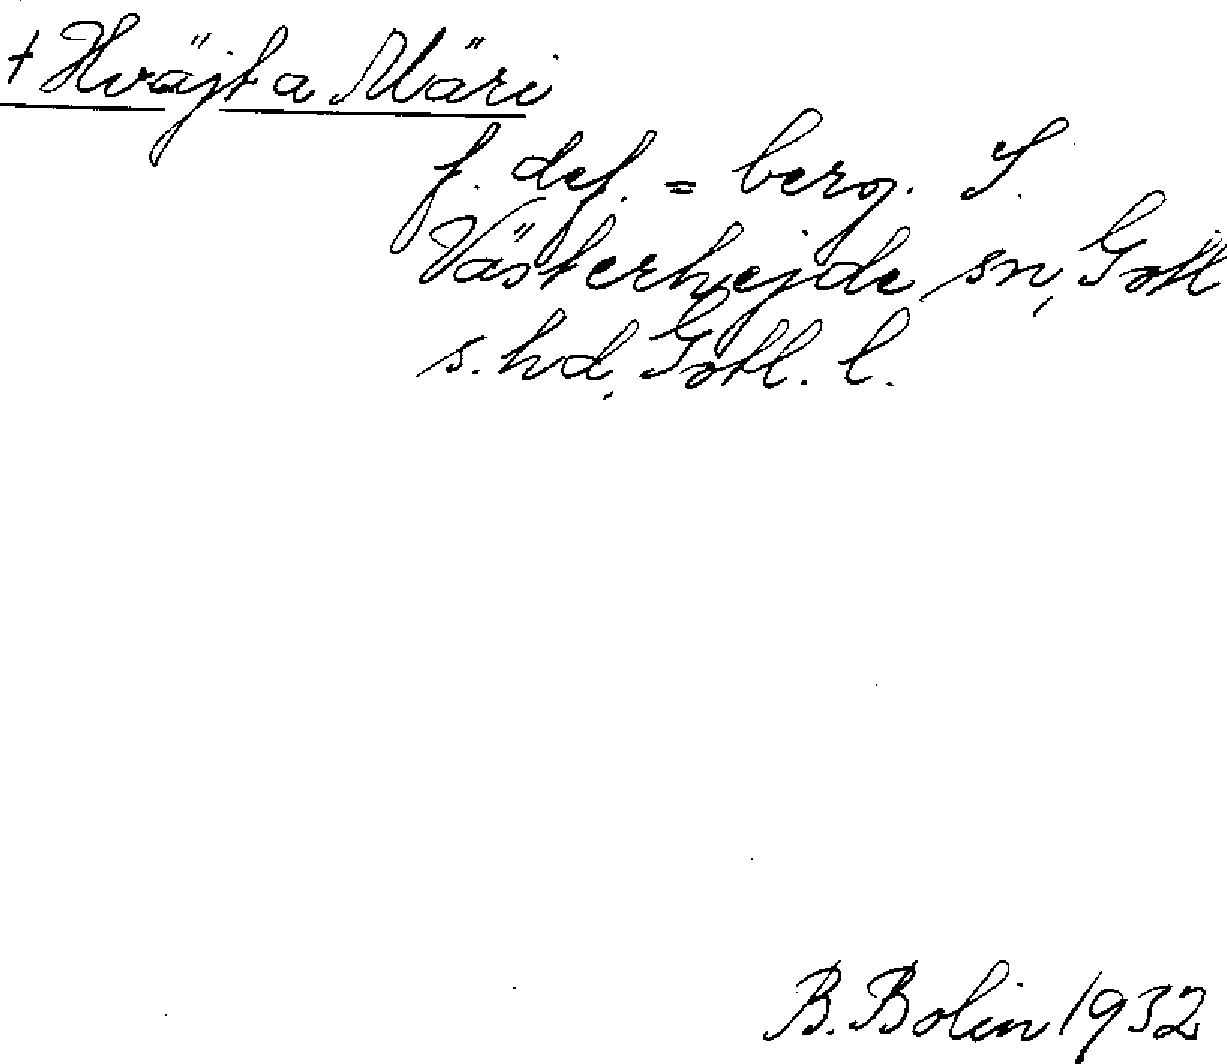 + Hväjta Märi
f. def. = berg. S.
Västerhejde sn, Gotl
s. hd, Gotl. l.
B. Bolin 1932